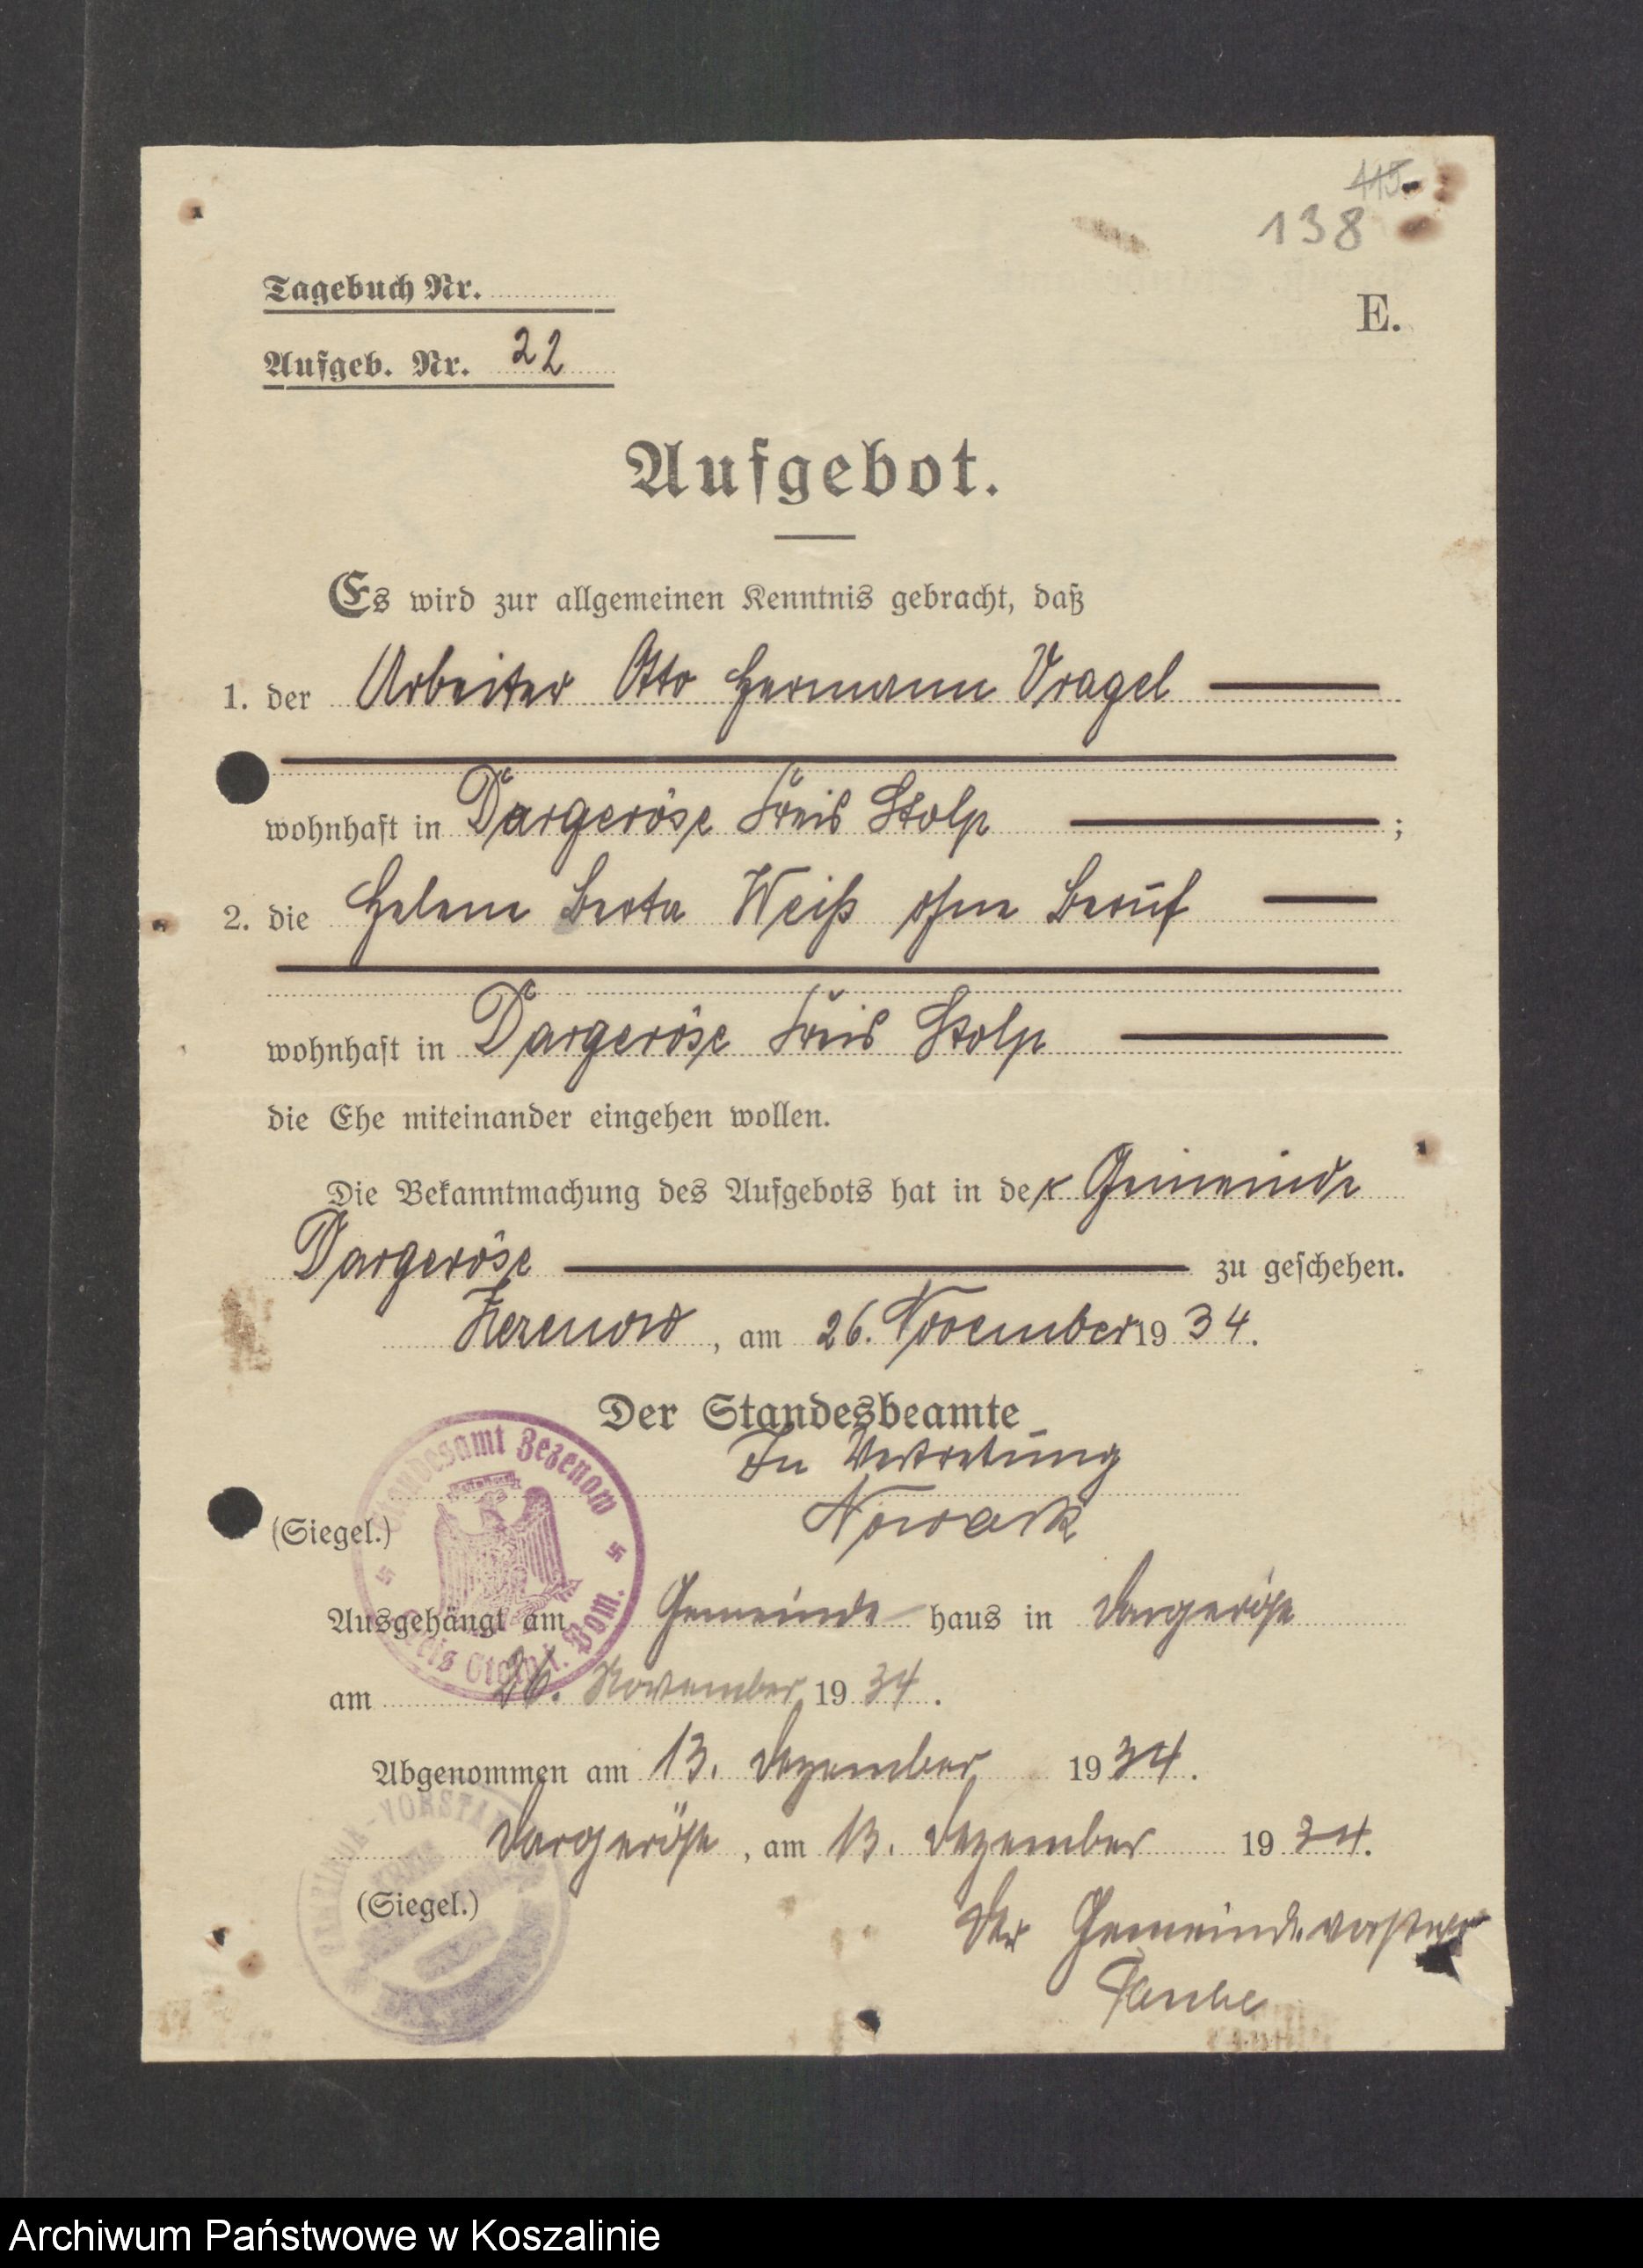 115.
138
Tagebuch Nr.
E.
Aufgeb. Nr. 22
Aufgebot.
Es wird zur allgemeinen Kenntnis gebracht, daß
1. der Arbeiter Otto Hermann Vragel
wohnhaft in Dargeröse Kreis Stolp ;
2. die Helene Berta Weiß ohne Beruf
wohnhaft in Dargeröse Kreis Stolp
die Ehe miteinander eingehen wollen.
Die Bekanntmachung des Aufgebots hat in der Gemeinde
Dargeröse zu geschehen.
Zezenow, am 26. November 1934.
Der Standesbeamte
In Vertretung
Nowack
Standesamt Zezenow
Kreis Stolp i. Pom.
(Siegel.)
Ausgehängt am Gemeinde haus in Dargeröse
am 26. November 1934.
Abgenommen am 13. Dezember 1934.
Dargeröse, am 13. Dezember 1934.
(Siegel.)
Der Gemeindevorsteher
Archiwum Państwowe w Koszalinie